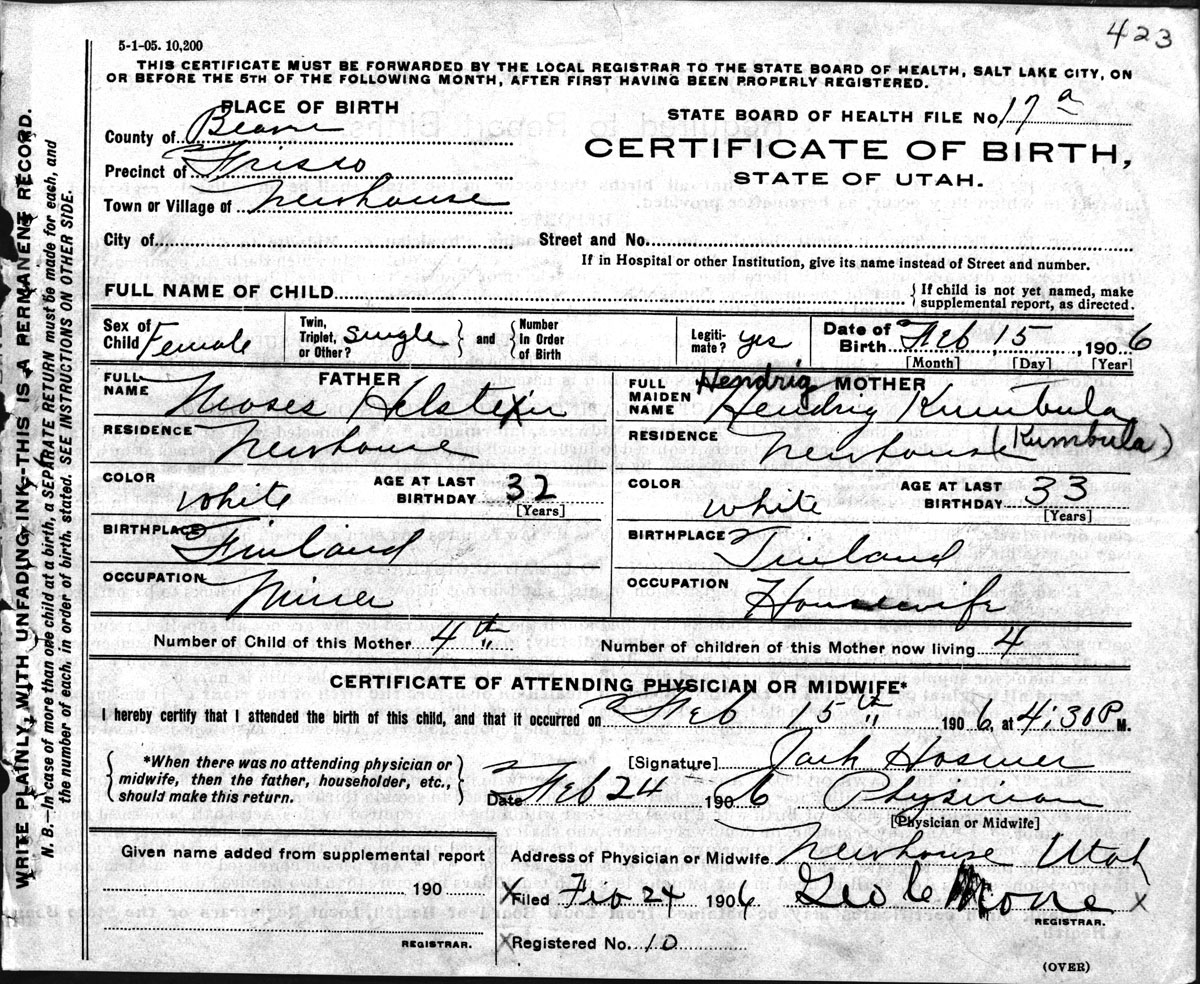 423
5-1-05. 10,200
THIS CERTIFICATE MUST BE FORWARDED BY THE LOCAL REGISTRAR TO THE STATE BOARD OF HEALTH, SALT LAKE CITY, ON
OR BEFORE THE 5TH OF THE FOLLOWING MONTH, AFTER FIRST HAVING BEEN PROPERLY REGISTERED.
PLACE OF BIRTH
STATE BOARD OF HEALTH FILE No. 17 a
County of
CERTIFICATE OF BIRTH,
Precinct of Frisco
STATE OF UTAH.
Town or Village of Newhouse
City of Street and No.
If in Hospital or other Institution, give its name instead of Street and number.
FULL NAME OF CHILD {If child is not yet named, make
supplemental report, as directed.
Sex of Child Female Twin, Triplet, or Other? single and Number In Order of Birth Legiti-mate? yes Date of Birth Feb 15, 1906
[Month] [Day] [Year]
FATHER
FULL NAME Moses
RESIDENCE Newhouse
COLOR White AGE AT LAST BIRTHDAY 32
[Years]
BIRTHPLACE Finland
OCCUPATION Miner
MOTHER
Hendrig
FULL MAIDEN NAME Hendrig Kumbula
(Kumbula)
RESIDENCE Newhouse
COLOR White AGE AT LAST BIRTHDAY 33
[Years]
BIRTHPLACE Finland
OCCUPATION Housewife
Number of Child of this Mother 4th Number of children of this Mother now living 4
CERTIFICATE OF ATTENDING PHYSICIAN OR MIDWIFE*
I hereby certify that I attended the birth of this child, and that it occurred on Feb 15th 1906, at 4:30 P M.
*When there was no attending physician or
midwife, then the father, householder, etc.,
should make this return.
[Signature] Jack Hosmer
Date Feb 24 1906 Physician
[Physician or Midwife]
Given name added from supplemental report
190
REGISTRAR.
Address of Physician or Midwife Newhouse Utah
X Filed Feb 24 1906 Geo C X
REGISTRAR.
X Registered No. 10
(OVER)
WRITE PLAINLY, WITH UNFADING INK—THIS IS A PERMANENT RECORD.
N. B.—In case of more than one child at a birth, a SEPARATE RETURN must be made for each, and
the number of each, in order of birth, stated. SEE INSTRUCTIONS ON OTHER SIDE.